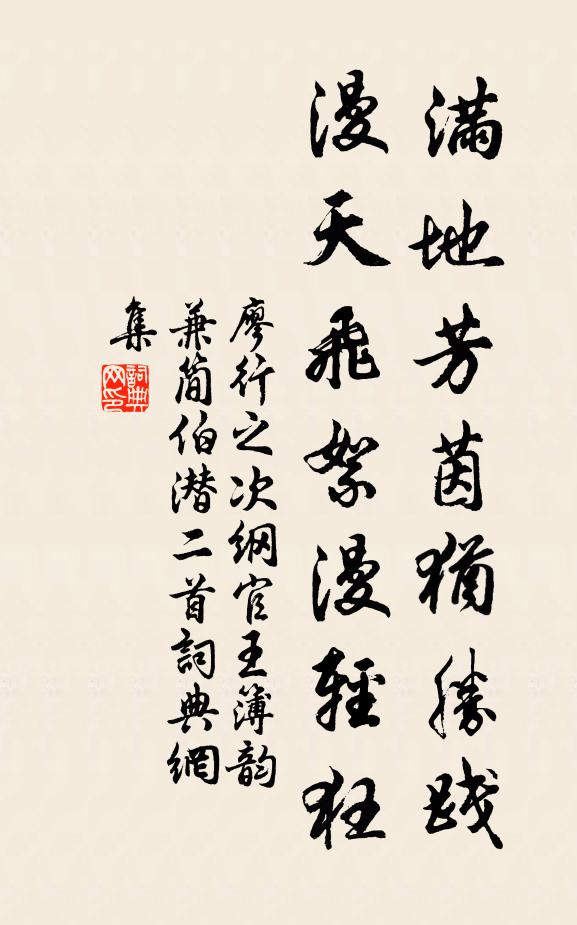 滿地芳茵猶勝踐
漫天飛絮漫輕狂
廖行之次綱官王簿韵
兼简伯潜二首詞典網
集
詞典网印